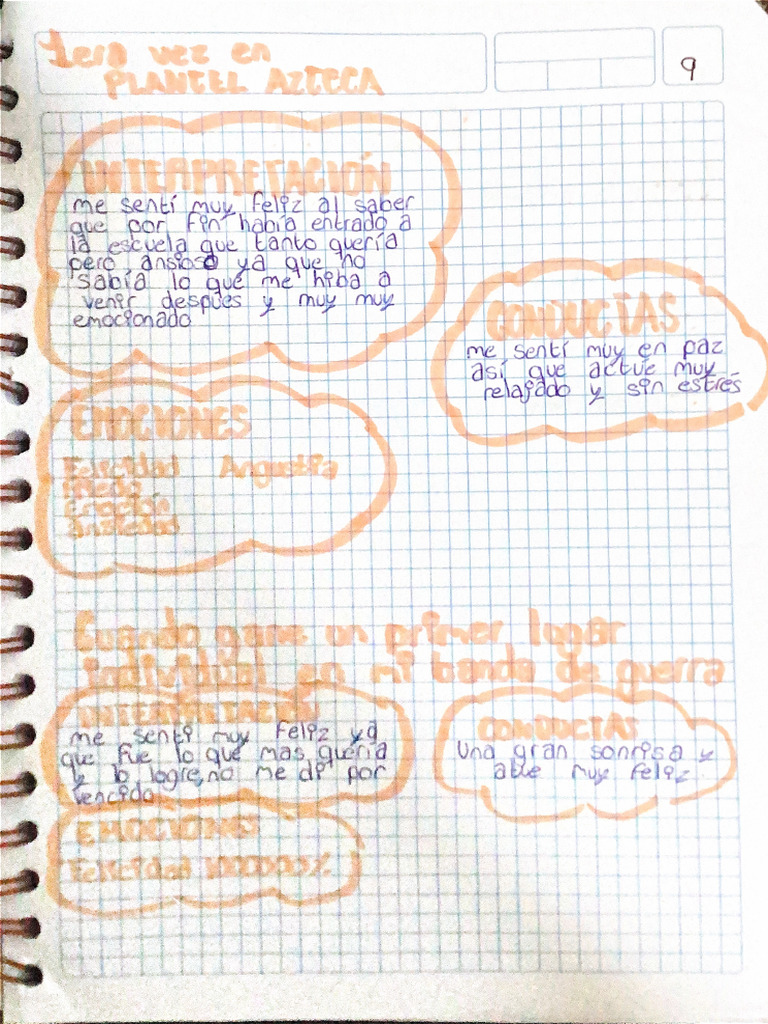 1era vez en
PLANTEL AZTECA
9
INTERPRETACIÓN
me sentí muy feliz al saber
que por fin había entrado a
la escuela que tanto quería
pero ansioso ya que no
sabía lo que me hiba a
venir despues y muy muy
emocionado
CONDUCTAS
me sentí muy en paz
así que actué muy
relajado y sin estrés
EMOCIONES
Felicidad Angustia
Miedo
Emoción
Ansiedad
Cuando gane un primer lugar
individual en mi banda de guerra
INTERPRETACIÓN
me sentí muy feliz ya
que fue lo que mas quería
y lo logre, no me di por
vencido
CONDUCTAS
Una gran sonrisa y
muy feliz
EMOCIONES
Felicidad